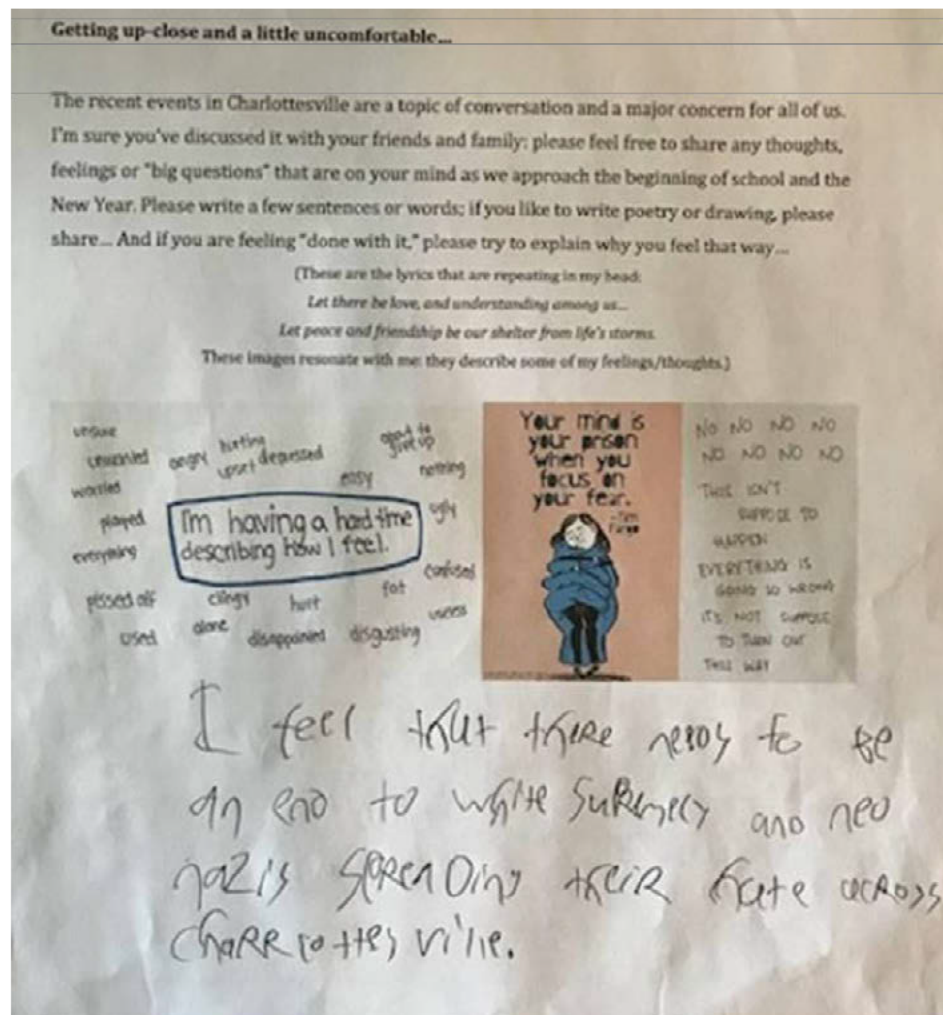 Getting up-close and a little uncomfortable...
The recent events in Charlottesville are a topic of conversation and a major concern for all of us.
I'm sure you've discussed it with your friends and family; please feel free to share any thoughts,
feelings or "big questions" that are on your mind as we approach the beginning of school and the
New Year. Please write a few sentences or words; if you like to write poetry or drawing, please
share... And if you are feeling "done with it," please try to explain why you feel that way...
(These are the lyrics that are repeating in my head:
Let there be love, and understanding among us...
Let peace and friendship be our shelter from life's storms.
These images resonate with me: they describe some of my feelings/thoughts.)
unsure
unwanted angry hurting upset depressed good to give up
worried easy nothing
played I'm having a hard time ugly
everything describing how I feel.
confused
pissed off clingy hurt fat
used alone disappointed disgusting useless
Your mind is
your prison
when you
focus on
your fear.
NO NO NO NO
NO NO NO NO
THIS ISN'T
SUPPOSE TO
HAPPEN
EVERYTHING IS
GOING SO WRONG
IT'S NOT SUPPOSE
TO TURN OUT
THIS WAY
I feel that there needs to be
an end to white supremecy and neo
nazis spreading their hate across
Charrlottesville.